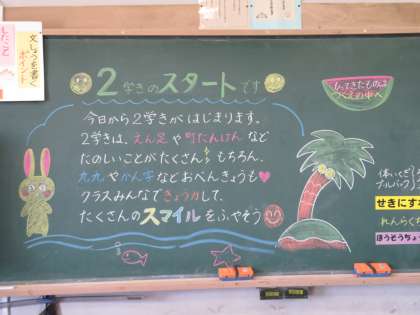 文しょうを書く
ポイント
2学きのスタートです
今日から2学きがはじまります。
2学きは、えん足や町たんけんなど
たのしいことがたくさん もちろん、
九九やかん字などおべんきょうも♥
クラスみんなできょう力して、
たくさんのスマイルをふやそう
もってきたものは
つくえの中へ
せきにすわ
れんらくち
ほうそうちょ